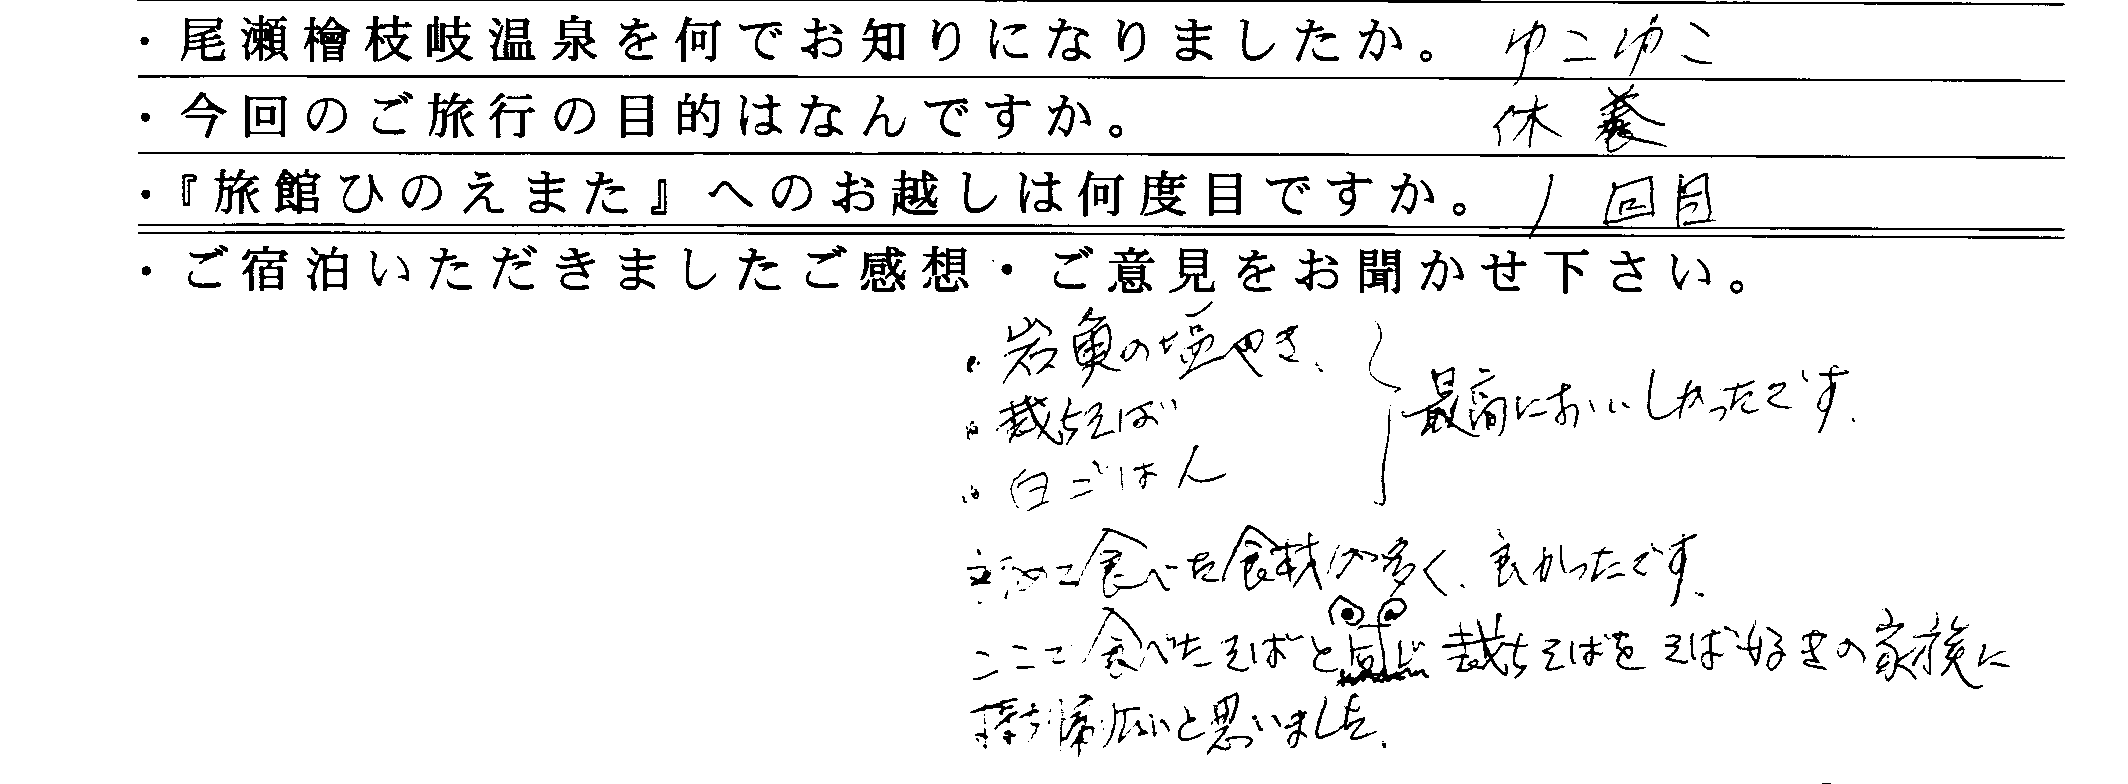 ・尾瀬檜枝岐温泉を何でお知りになりましたか。 ゆこゆこ
・今回のご旅行の目的はなんですか。 休養
・『旅館ひのえまた』へのお越しは何度目ですか。 1回目
・ご宿泊いただきましたご感想・ご意見をお聞かせ下さい。
・岩魚の塩やき、
・裁ちそば
・白ごはん
最高においしかったです。
初めて食べた食材が多く、良かったです。
ここで食べたそばと同じ裁ちそばをそば好きの家族に
持ち帰りたいと思いました。